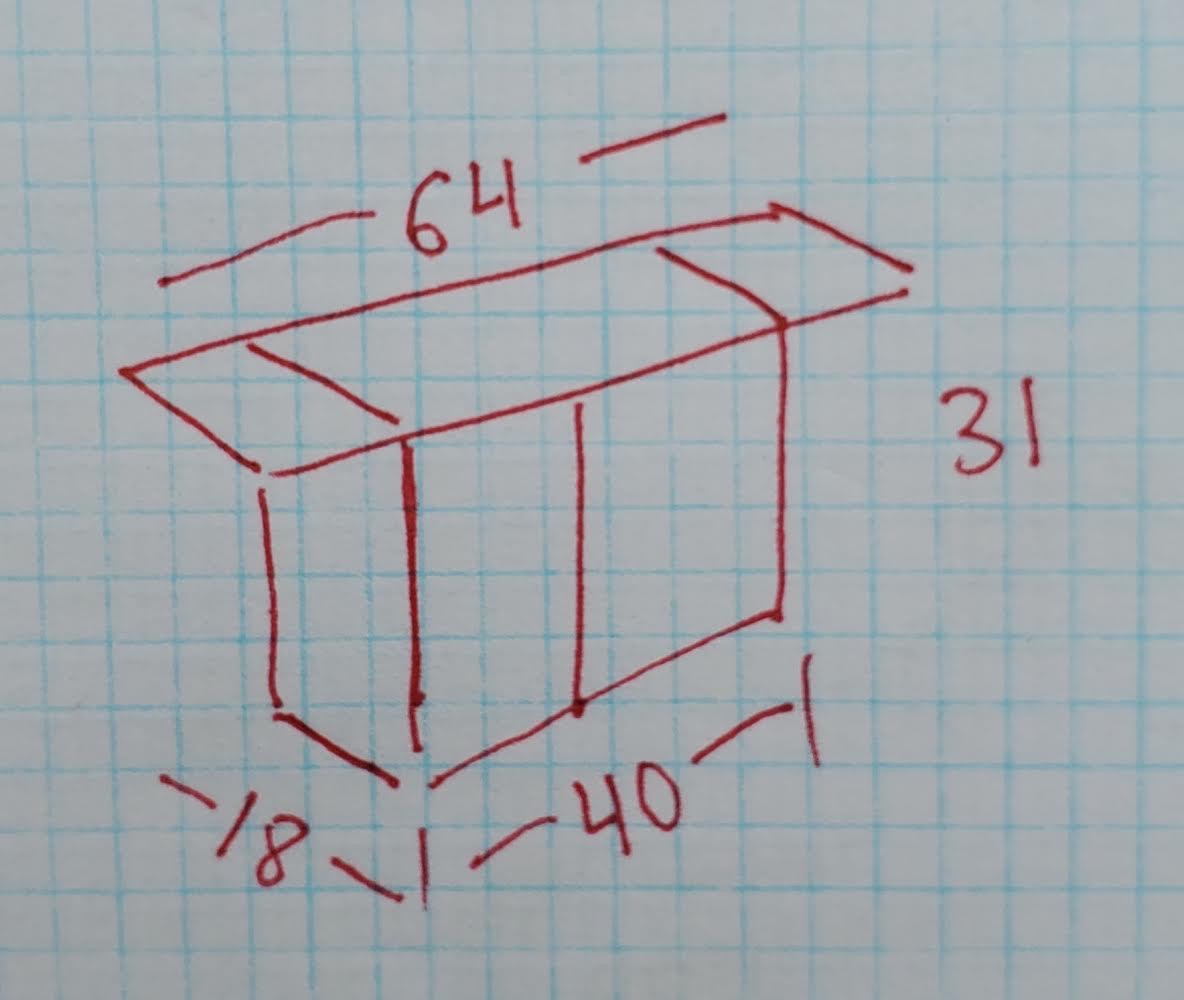 64
31
40
18